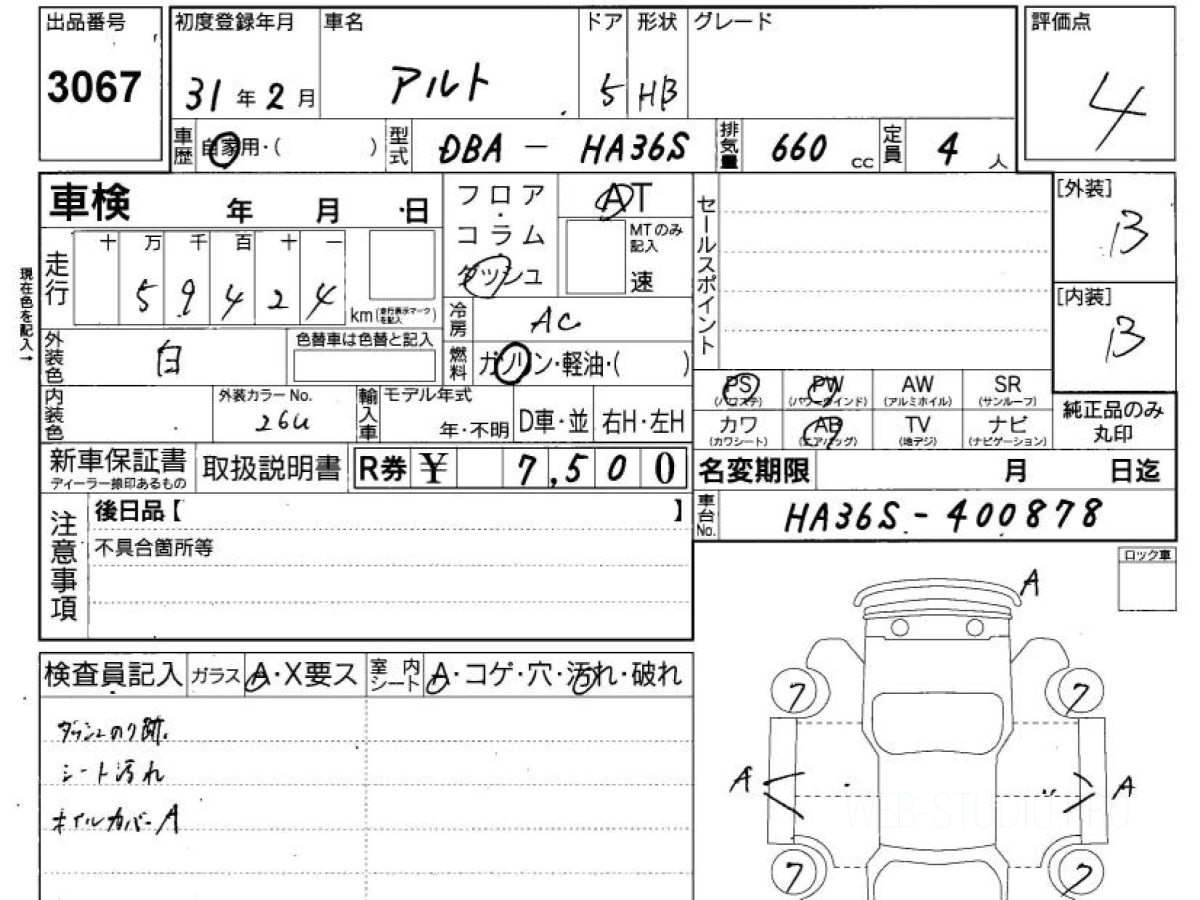 出品番号 初度登録年月 車名 ドア 形状 グレード 評価点
3067 31年2月 アルト 5 HB 4
車歴 自家用・( ) 型式 DBA - HA36S 排気量 660 cc 定員 4 人
車検 年 月 日 フロア・コラム ダッシュ AT セールスポイント [外装]
MTのみ記入 速 B
現在色を記入→ 走行 十 万 千 百 十 一 [内装]
5 9 4 2 4 km (走行表示マークを記入) 冷房 AC B
外装色 白 色替車は色替と記入 燃料 ガソリン・軽油・( )
PS (パワステ) PW (パワーウインド) AW (アルミホイル) SR (サンルーフ)
内装色 外装カラーNo. 26U 輸入車 モデル年式 年・不明 D車・並 右H・左H
カワ (カワシート) AB (エアバッグ) TV (地デジ) ナビ (ナビゲーション) 純正品のみ丸印
新車保証書 ディーラー捺印あるもの 取扱説明書 R券 ¥ 7,500 名変期限 月 日迄
注意事項 後日品【 】 車台No. HA36S-400878
不具合箇所等
ロック車
A
検査員記入 ガラス A・X要ス 室内シート A・コゲ・穴・汚れ・破れ
7 7
ダッシュのり跡.
シート汚れ
A A
ホイルカバーA
WEB-STUDIO
7 7